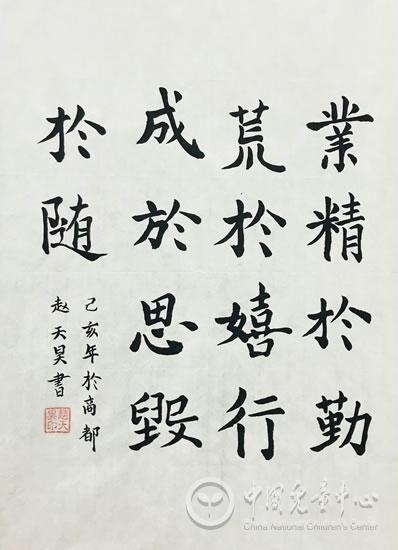 業精於勤
荒於嬉行
成於思毀
於随
己亥年於商都
赵天昊書
中國兒童中心
China National Children's Center